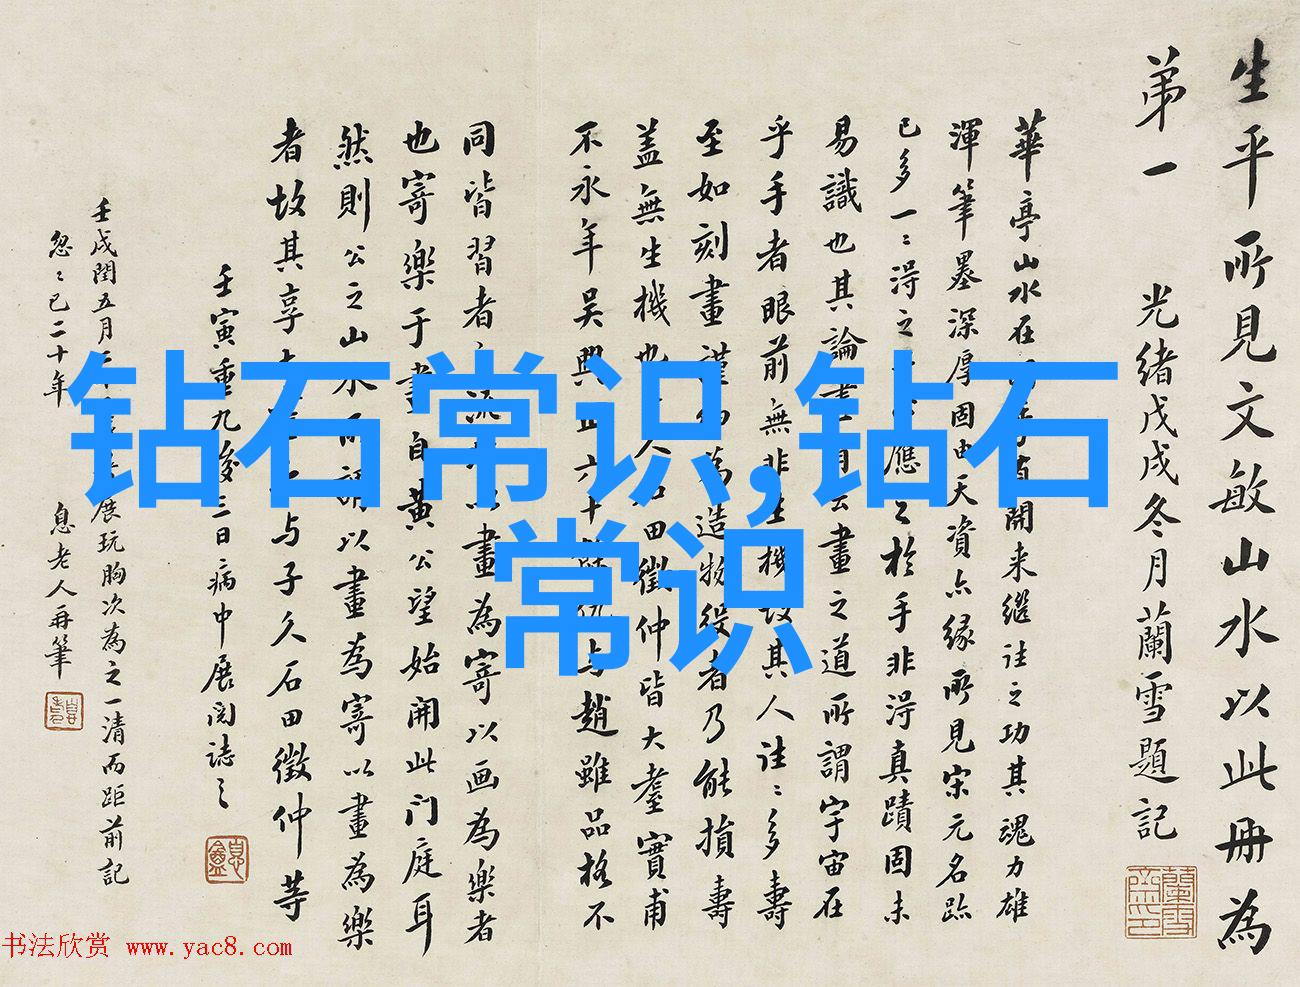 生平所見文敏山水以此冊為
弟一 光緒戊戌冬月蘭雪題記
華亭山水在
開来繼往之功其魂力雄
渾筆墨深厚固由天資亦緣所見宋元名跡
已多一〻得之
應之於手非得真蹟固未
易識也其論畫
云畫之道所謂宇宙在
乎手者眼前無非生機故其人往〻多壽
至如刻畫謹
為造物役者乃能損壽
蓋無生機也
人石田徵仲皆大耋實甫
不永年吳興
六十
仇与趙雖品格不
同皆習者之流
以畫為寄以画為樂者
也寄樂于畫自黃公望始開此门庭耳
然則公之山水
謂以畫為寄以畫為樂
者故其享
与子久石田徵仲等
壬寅重九後三日病中展閱誌之
壬戌閏五月
展玩胸次為之一清而距前記
忽〻已二十年 息老人再筆
钻石常识,钻石
常识
书法欣赏 www.yac8.com